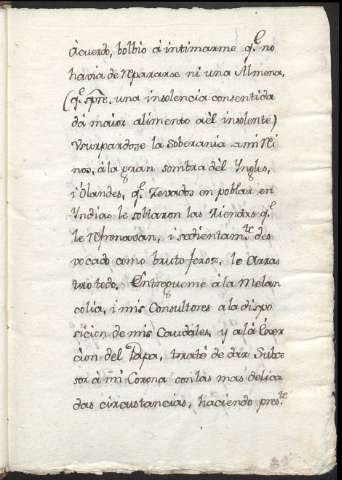 acuerdo, bolbio á intimarme q.e no
havia de repararse ni una Almena,
(q.e spre. una insolencia consentida
dá maior alimento aèl insolente)
Vsurpandose la Soberania a mi Rei
no, á la gran sombra dèl Yngles,
i Olandes, q.e en poblar en
Yndias le soltaron las Riendas q.e
le refrenavan, i sedientam.te des
vocado como bruto feroz, le arras
tró todo. Entregueme á la Melan
colia, i mis Consultores á la dispo
sicion de mis Caudales, y a la
cion del Papa, traté de dar Subce
sor á mi Corona con las mas delica
das circustancias, haciendo pres.te